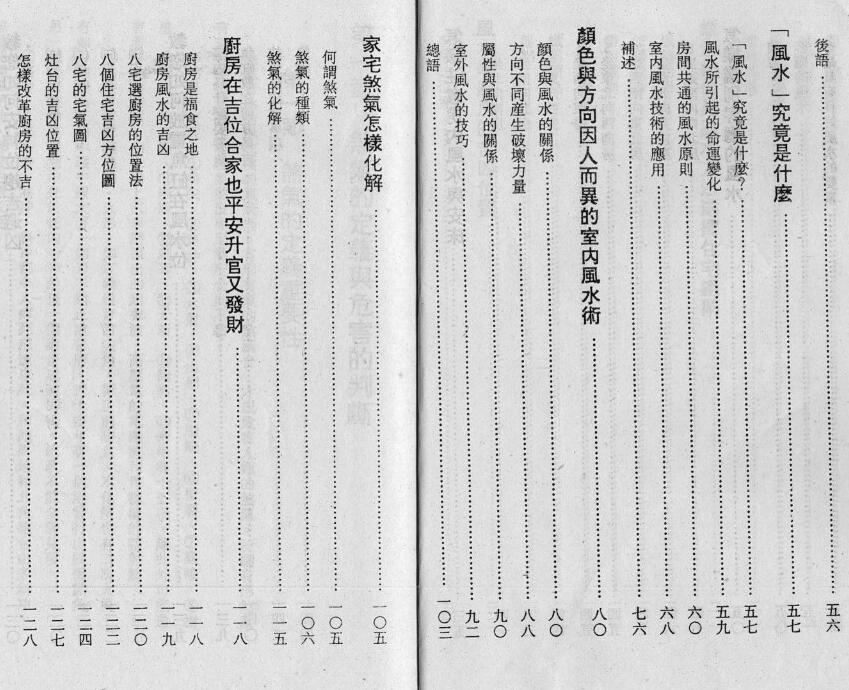 後語……五六
「風水」究竟是什麼……五七
「風水」究竟是什麼？……五七
風水所引起的命運變化……五九
房間共通的風水原則……六〇
室内風水技術的應用……六八
補述……七六
顏色與方向因人而異的室内風水術……八〇
顏色與風水的關係……八〇
方向不同産生破壞力量……八八
屬性與風水的關係……九〇
室外風水的技巧……九二
總語……一〇三
家宅煞氣怎樣化解……一〇五
何謂煞氣……一〇五
煞氣的種類……一〇六
煞氣的化解……一一五
廚房在吉位合家也平安升官又發財……一一八
廚房是福食之地……一一八
廚房風水的吉凶……一一九
八宅選廚房的位置法……一二〇
八個住宅吉凶方位圖……一二二
八宅的宅氣圖……一二四
灶台的吉凶位置……一二七
怎樣改革廚房的不吉……一二八